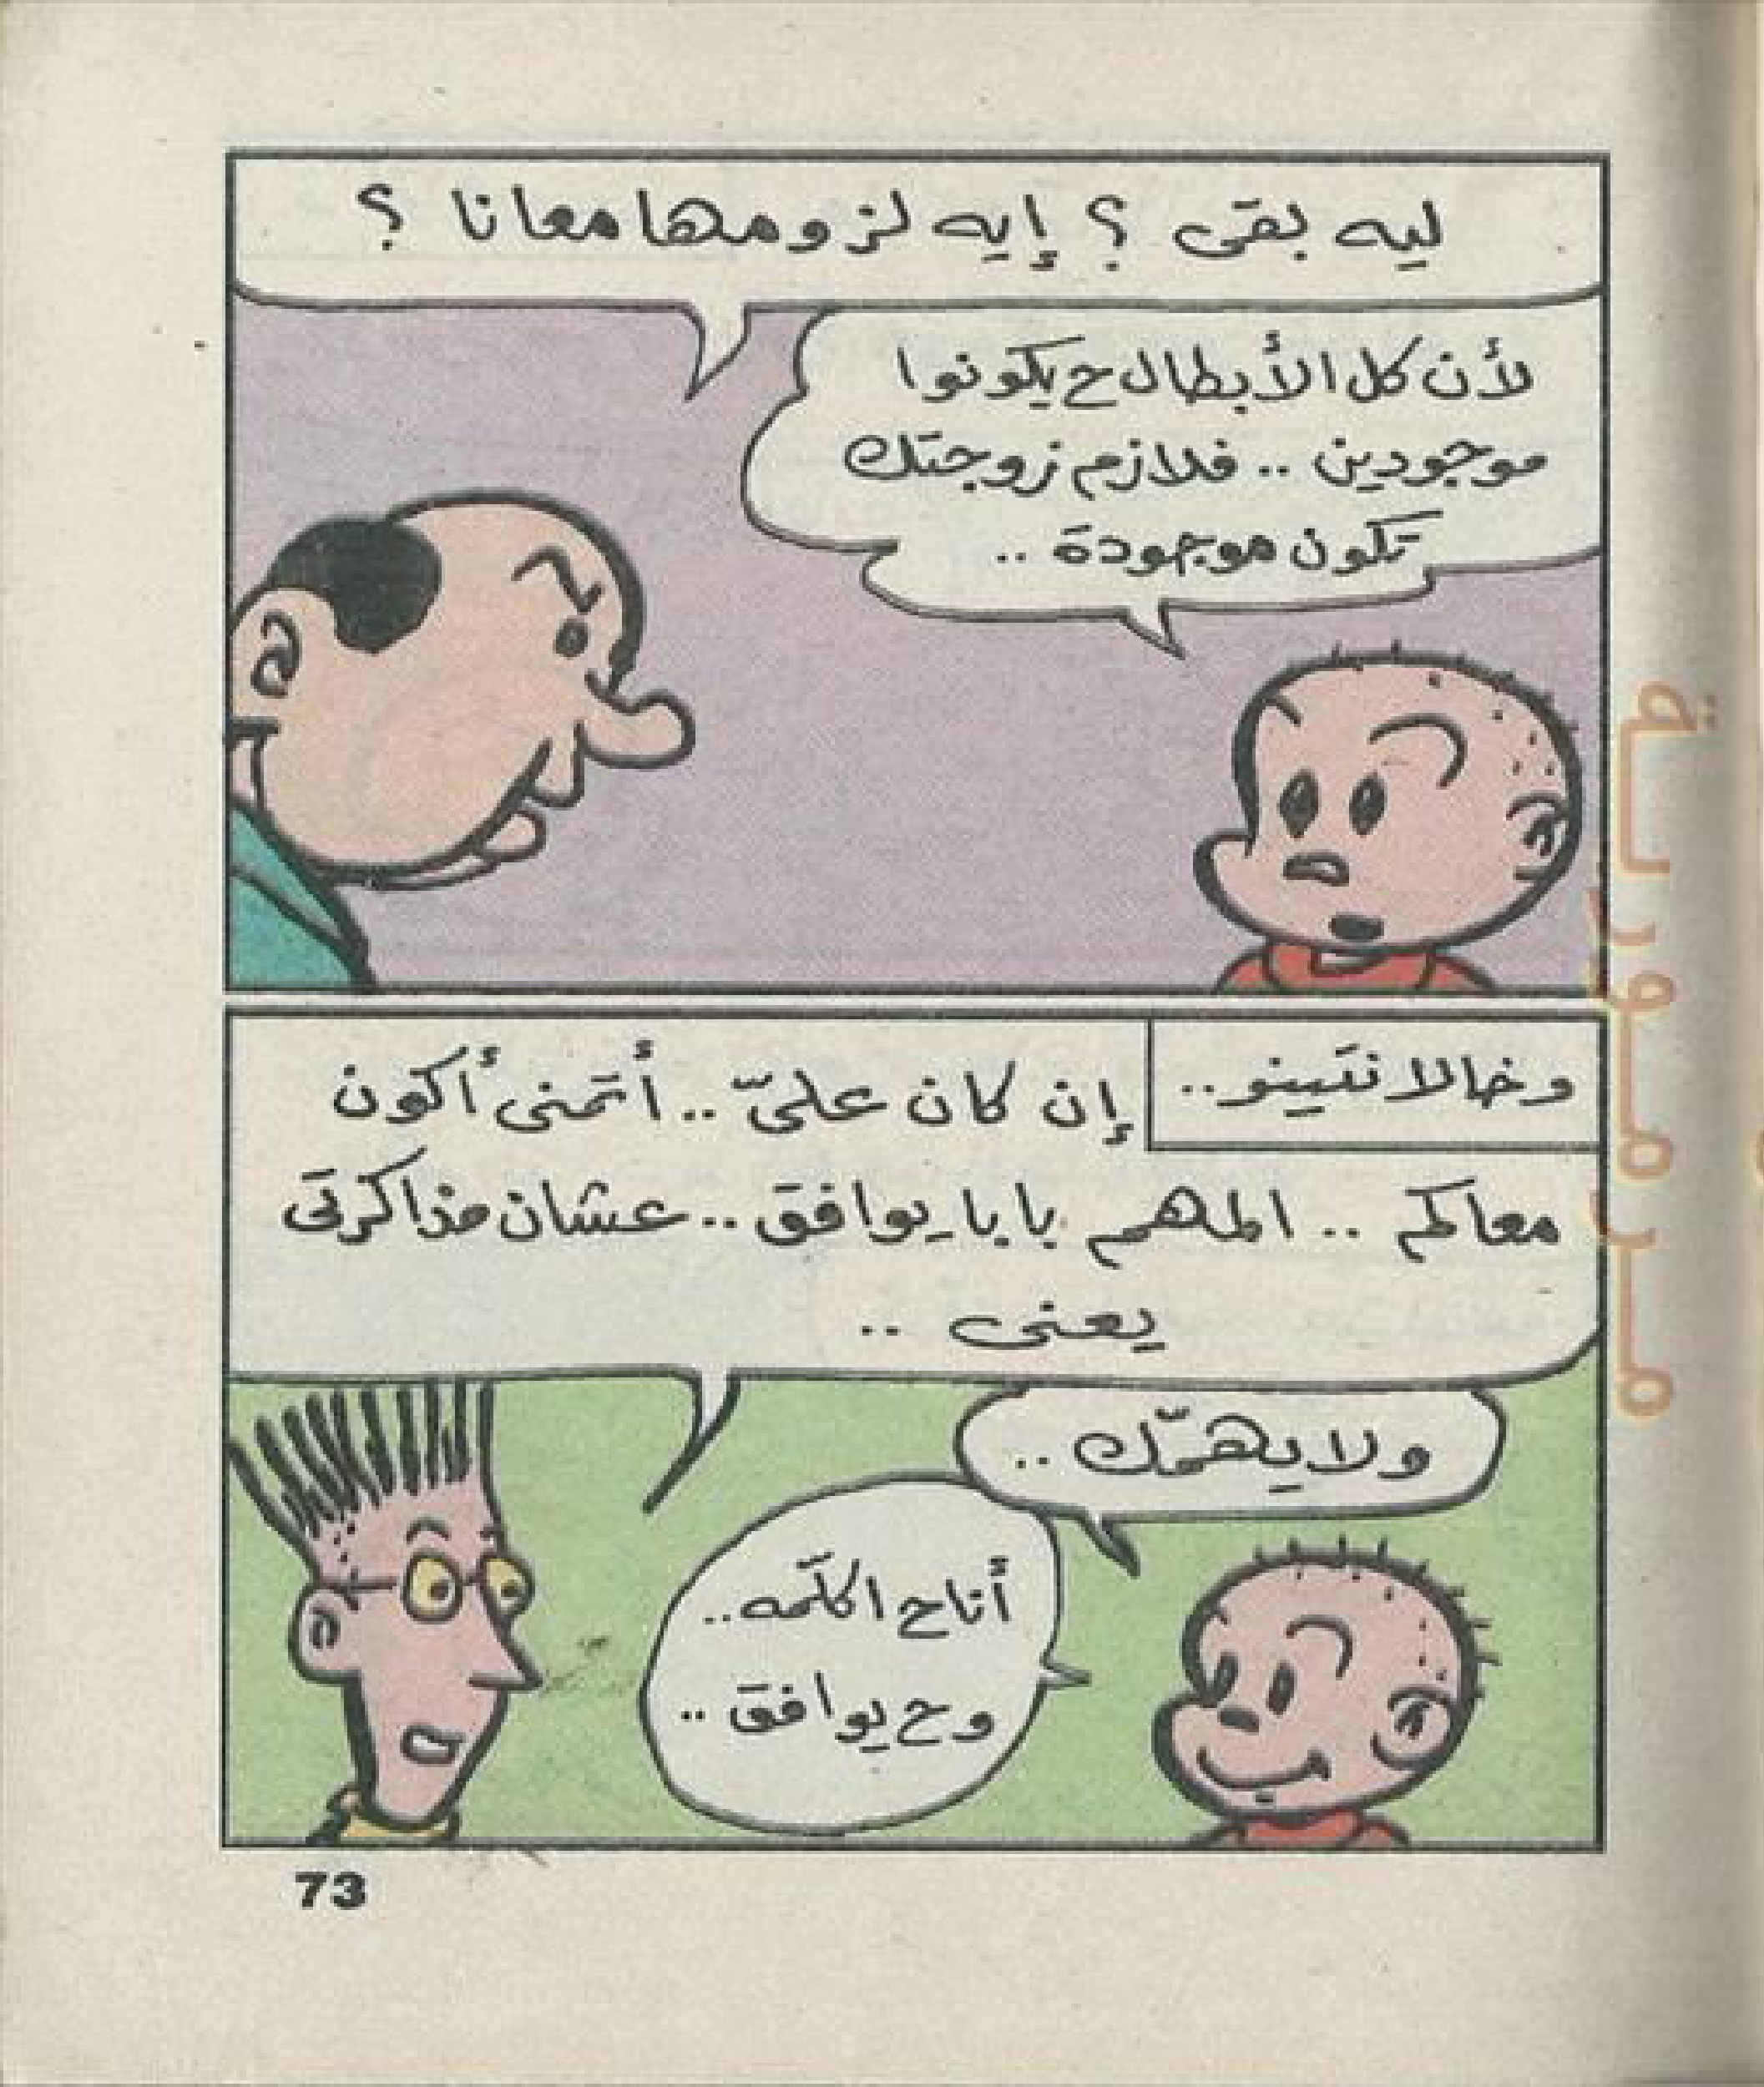 ليه بقى ؟ إيه لزومها معانا ؟
لأن كل الأبطال ح يكونوا
موجودين .. فلازم زوجتك
تكون موجودة ..
وخالا نتينو..
إن كان علىّ .. أتمنى أكون
معاكم .. المهم بابا يوافق .. عشان مذاكرتى
يعنى ..
ولا يهمّك ..
أنا ح اكلّمه ..
وح يوافق ..
73